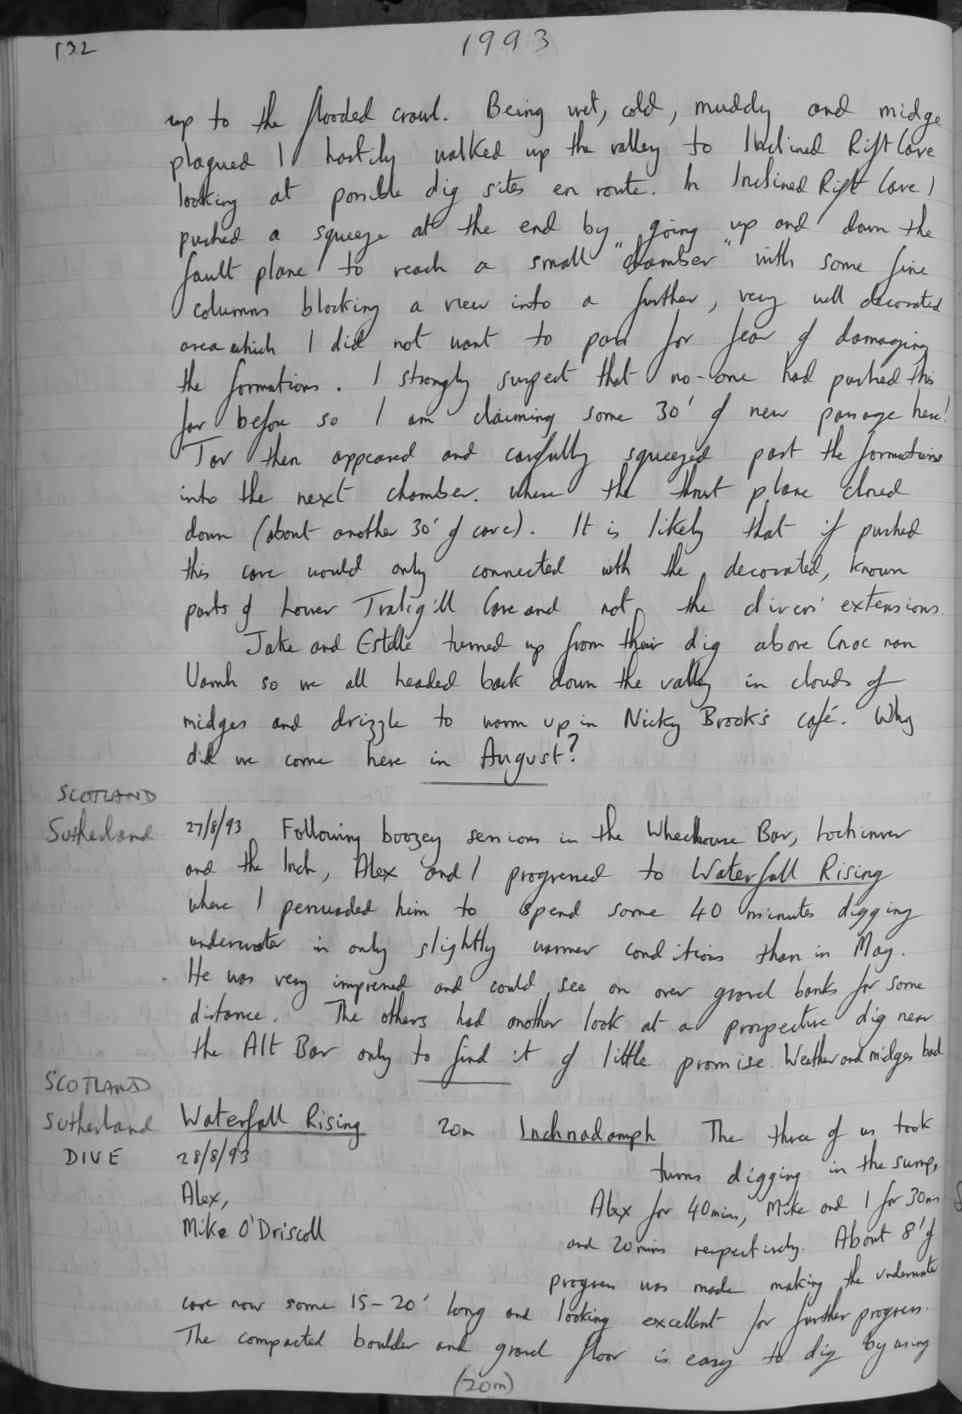 132
1993
up to the flooded crawl. Being wet, cold, muddy and midge
plagued I hastily walked up the valley to Inclined Rift Cave
looking at possible dig sites en route. In Inclined Rift Cave I
pushed a squeeze at the end by going up and down the
fault plane to reach a small "chamber" with some fine
columns blocking a view into a further, very well decorated
area which I did not want to pass for fear of damaging
the formations. I strongly suspect that no-one had pushed this
far before so I am claiming some 30' of new passage here!
Tav then appeared and carefully squeezed past the formations
into the next chamber. where the thrust plane closed
down (about another 30' of cave). It is likely that if pushed
this cave would only connected with the decorated, known
parts of Lower Traligill Cave and not the divers' extensions.
Jake and Estelle turned up from their dig above Cnoc nan
Uamh so we all headed back down the valley in clouds of
midges and drizzle to warm up in Nicky Brook's café. Why
did we come here in August?
SCOTLAND
Sutherland
27/8/93 Following boozey sessions in the Wheelhouse Bar, Lochinver
and the Inch, Alex and I progressed to Waterfall Rising
where I persuaded him to spend some 40 minutes digging
underwater in only slightly warmer conditions than in May.
He was very impressed and could see on over gravel banks for some
distance. The others had another look at a prospective dig near
the Alt Bar only to find it of little promise. Weather and midges bad
SCOTLAND
Sutherland
DIVE
Waterfall Rising 20m Inchnadamph The three of us took
28/8/93 turns digging in the sump,
Alex, Alex for 40mins, Mike and I for 30ms
Mike O'Driscoll and 20mins respectively. About 8' of
progress was made making the underwater
cave now some 15-20' long and looking excellent for further progress.
The compacted boulder and gravel floor is easy to dig by using
(20m)